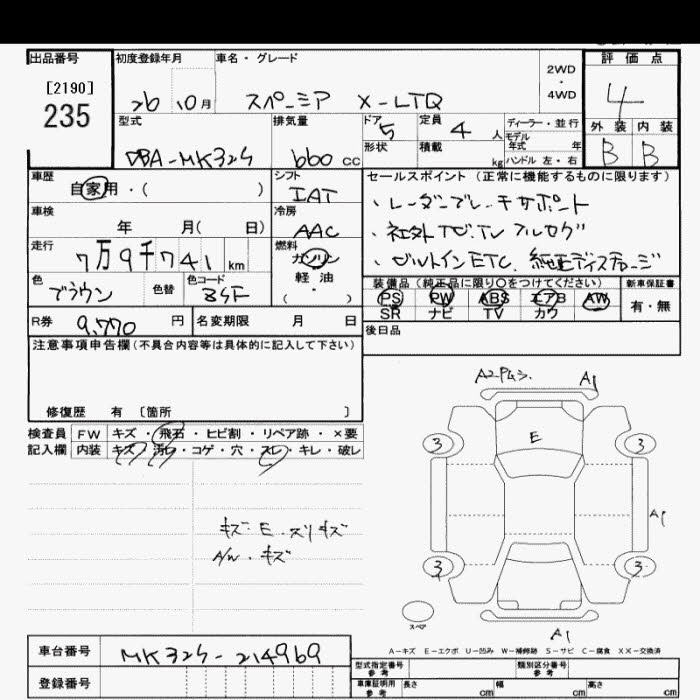 出品番号 初度登録年月 車名・グレード 評価点
[2190]
235
26 10月 スペーシア X-LTQ 2WD・4WD 4
型式 排気量 ドア 5 定員 4人 ディーラー・並行 外装 内装
モデル年式 年
DBA-MK32S 660cc 形状 積載 kg ハンドル 左・右 B B
車歴 シフト セールスポイント(正常に機能するものに限ります)
自家用・( ) IAT ・レーダーブレーキサポート
車検 冷房
年 月( 日) AAC ・社外ナビ.TV フルセグ
走行 燃料
7万9千741km ガソリン ・ビルトインETC.
色 色替 色コード 軽・油 装備品(純正品に限り○をつけてください) 新車保証書
ブラウン ・( ) PS PW ABS エアB AW 有・無
SR ナビ TV カワ
R券 9,770円 名変期限 月 日 後日品
注意事項申告欄(不具合内容等は具体的に記入して下さい)
修復歴 有 [箇所 ]
検査員 FW キズ・飛石・ヒビ割・リペア跡・×要
記入欄 内装 キズ・汚れ・コゲ・穴・スレ・キレ・破レ
A1
E
3 3
キズ・E・スリキズ A1
A/W・キズ
3 3
スペア
A1
A-キズ E-エクボ U-凹み W-補修跡 S-サビ C-腐食 XX-交換済
車台番号 MK32S-214969
型式指定番号 参考 類別区分番号 参考
登録番号 車庫証明用 参考 長さ cm 幅 cm 高さ cm